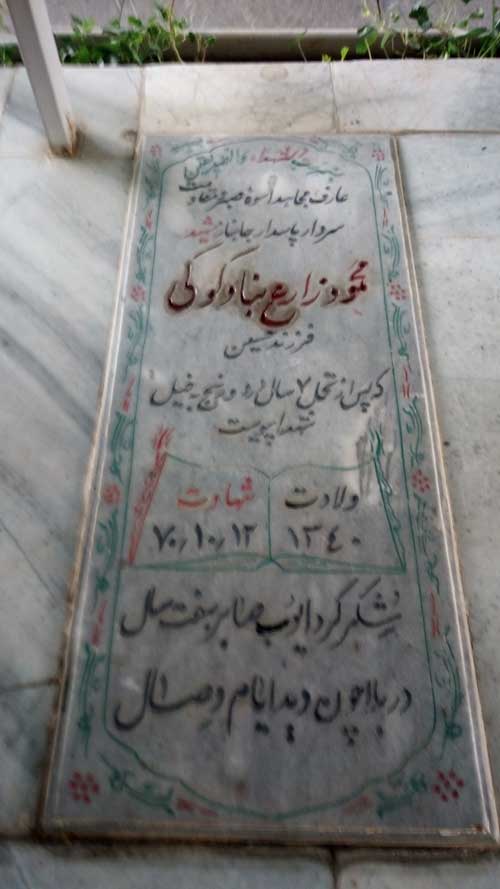 بسم رب الشهداء والصدیقین
عارف مجاهد اسوه صبر و مقاومت
سردار پاسدار جانباز شهید
محمود زارع بنادکوکی
فرزند حسین
که پس از تحمل ۷ سال درد و رنج به خیل
شهدا پیوست
ولادت شهادت
۱۳۴۰ ۷۰٫۱۰٫۱۲
شکر کرد ایوب صابر هفت سال
در بلا چون دید ایام وصال